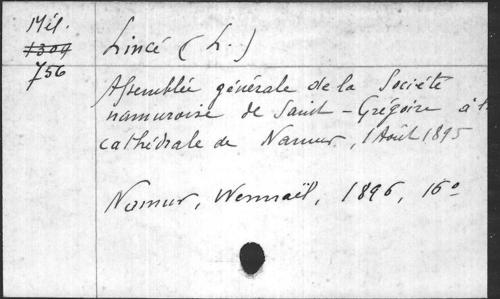 Mél.
1309
756
Lincé (L.)
Assemblée générale de la Société
namuroise de Saint-Grégoire à l
cathédrale de Namur, 1 Août 1895
Namur, Wesmaël, 1896, 16º